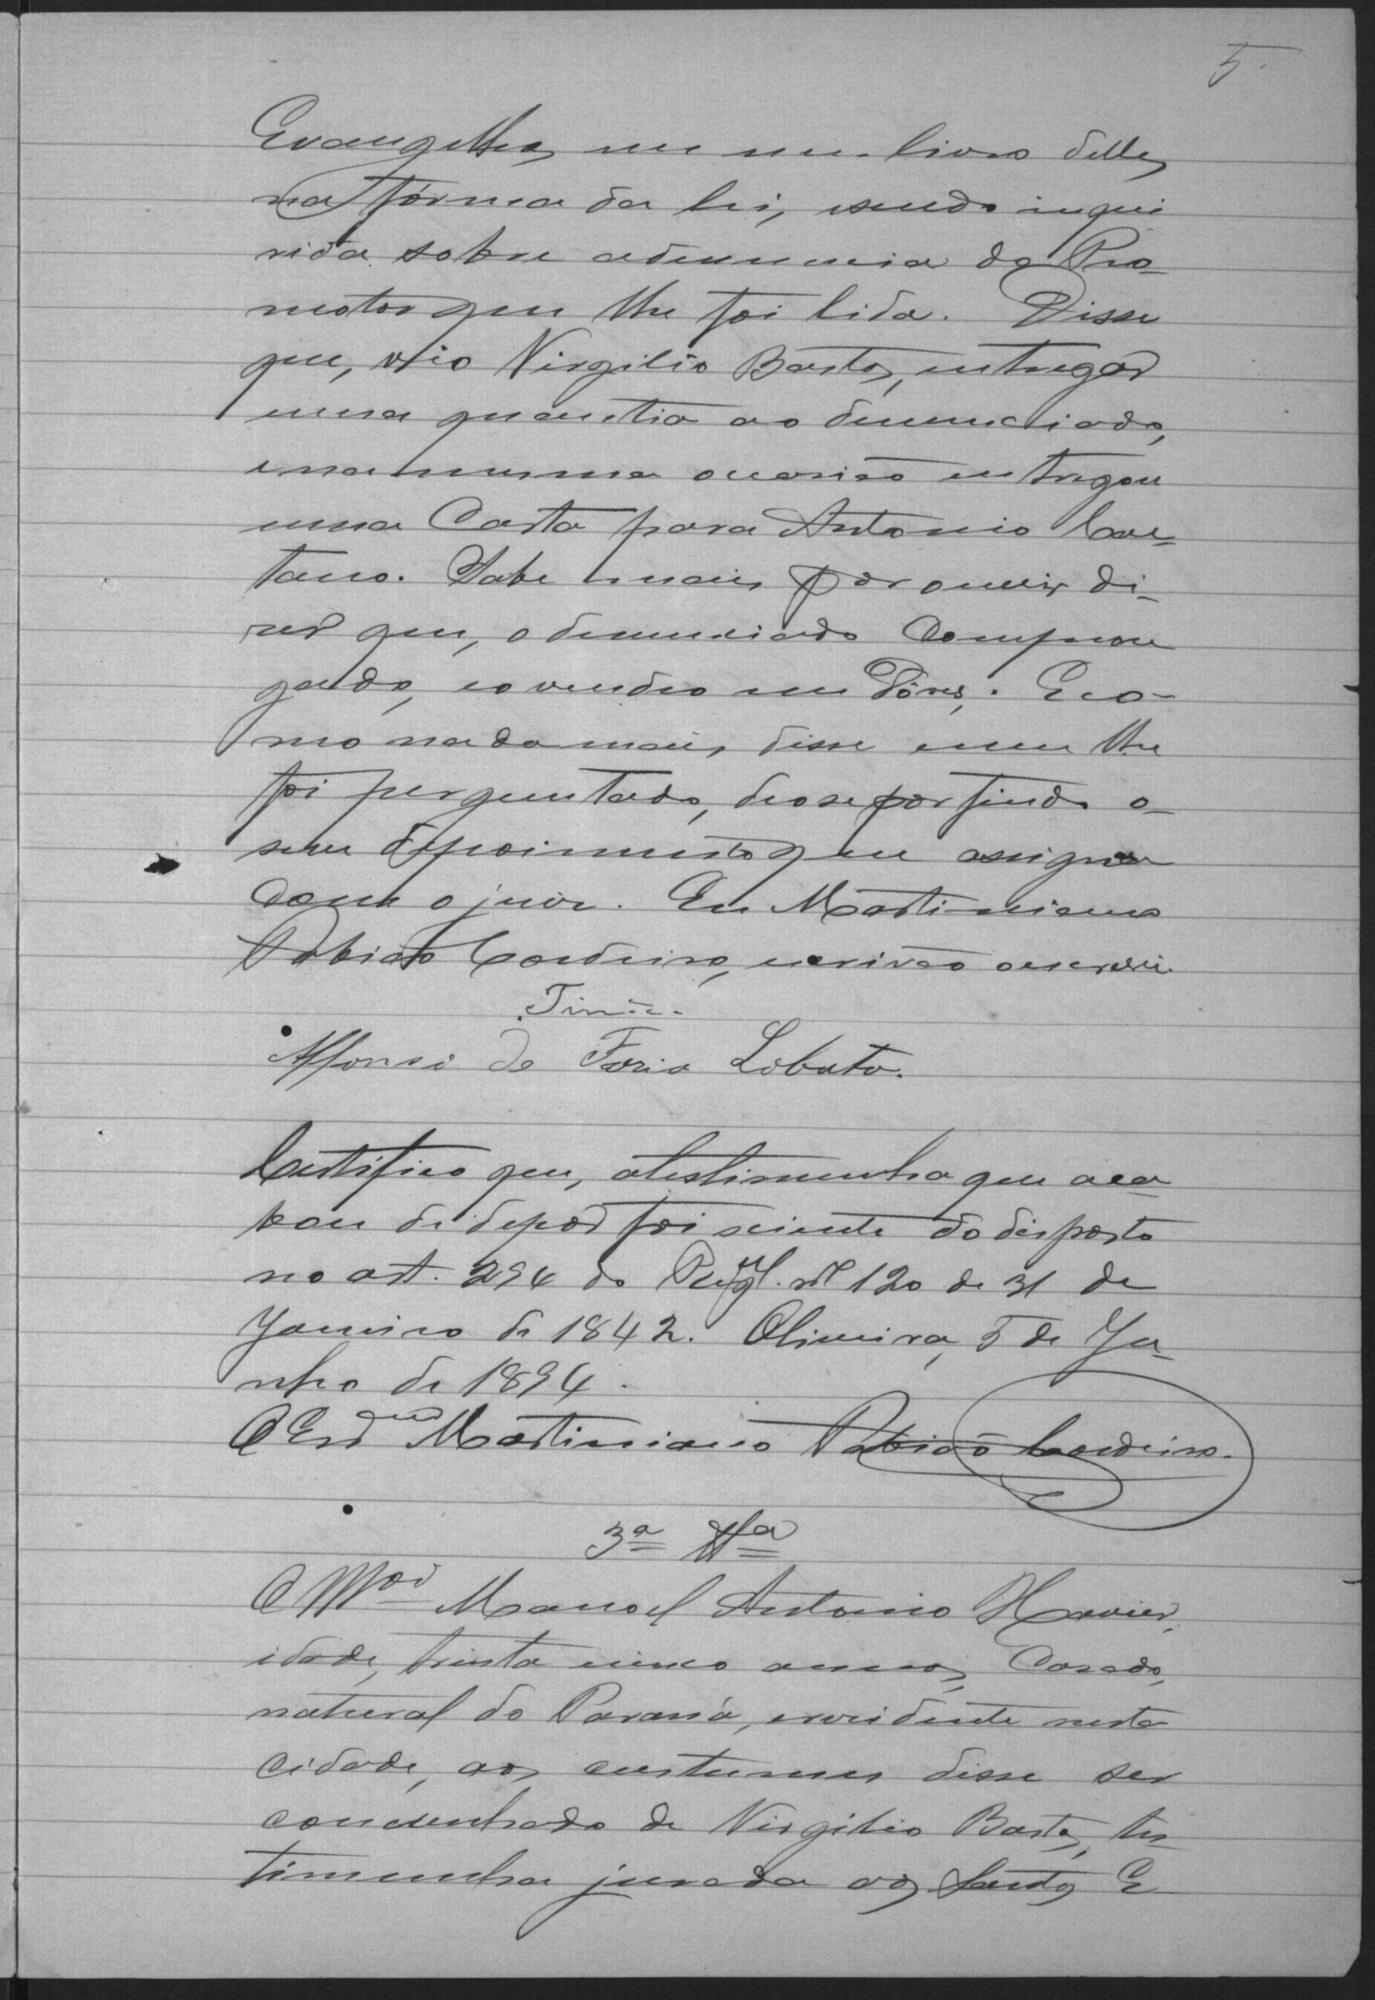 5
Evangelhos em um livro delles
na fórma da lei, esendo inqui
rida sobre adenuncia do Pro-
motor que lhe foi lida. Disse
que, vio Virgilio Bastos, entregar
uma quantia ao denunciado,
enamesma occasião entregou
uma Carta para Antonio Cae-
tano. Sabe mais por ouvir di-
rer que, o denunciado
eo vendeo em Pôres. Eco-
mo nada mais, disse enem lhe
foi perguntado, deose por findo o-
seu depoimento que assigna
com o juiz. Eu Martiniano
Cordeiro, escrivão oescrevi.
Affonso de Faria Lobato.
Certifico que, atestimunha que aca-
bou de depor foi sciente do disposto
no art. 294 do Regl. nº 120 de 31 de
Janeiro de 1842. Oliveira, 5 de Ju-
nho de 1894.
O Esc Martiniano Cordeiro.
3ª Tª
Manoel Antonio Xavier,
idade, trinta cinco annos, Casado,
natural do Paraná, eresidente nesta
cidade, aos custumes disse ser
concunhado de Virgilio Bastos, tes
timunha jurada aos Santos E